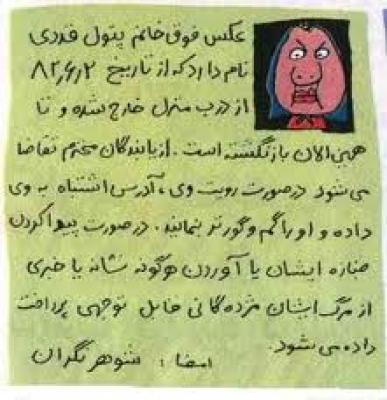 عکس فوق خانم پنول قندی
نام دارد که از تاریخ ۸۲٫۶٫۲
از درب منزل خارج شده و تا
همین الان بازنگشته است. از یابندگان محترم تقاضا
می‌شود در صورت رویت وی، آدرس اشتباه به وی
داده و او را گم و گورتر نمایند. در صورت پیدا کردن
جنازه ایشان یا آوردن هرگونه نشانه یا خبری
از مرگ ایشان مژده‌گانی قابل توجهی پرداخت
داده می‌شود.
امضا: شوهر نگران